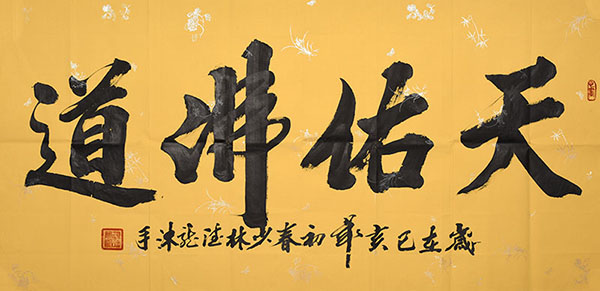 天佑佛道
歲在己亥年初春少林沐手